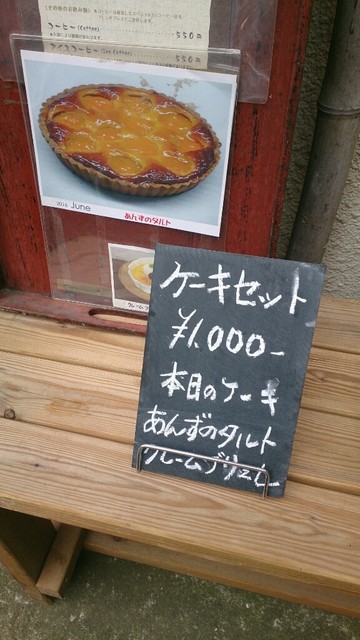 コーヒー (Coffee) 550
アイスコーヒー (Ice Coffee) 550
2016 June
あんずのタルト
ケーキセット
¥1.000-
本日のケーキ
あんずのタルト
クレームブリュレ